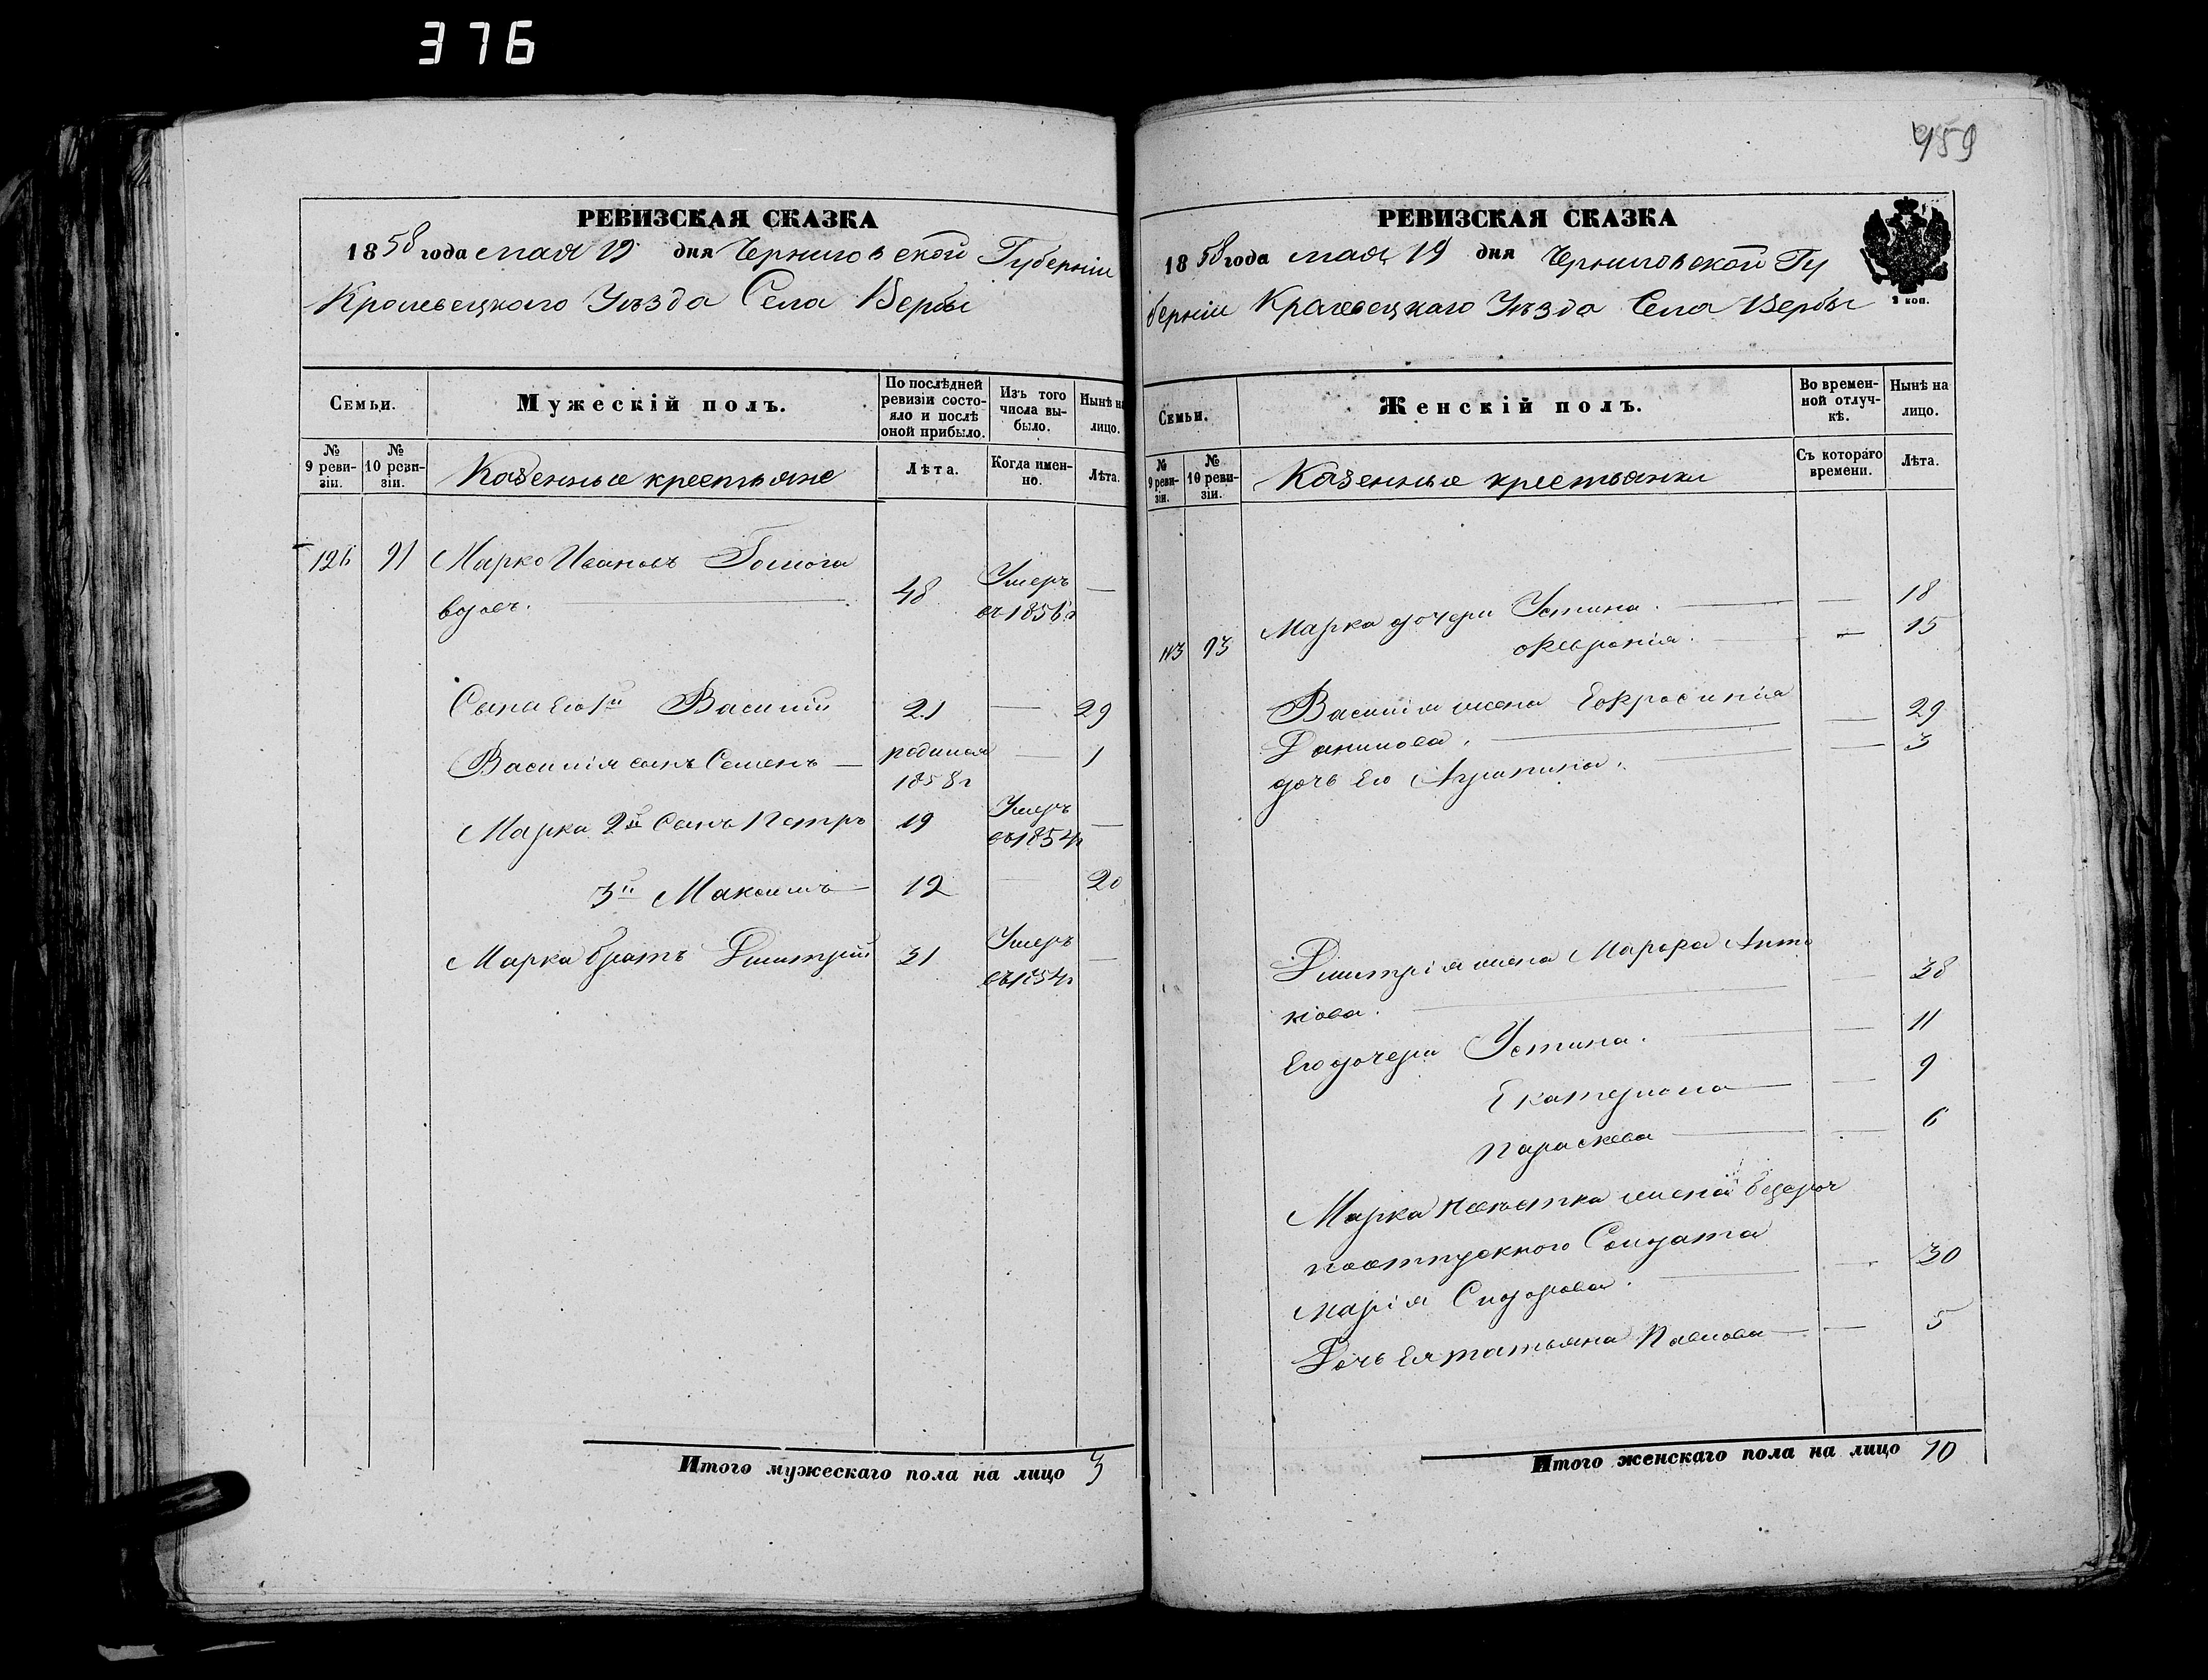 376
РЕВИЗСКАЯ СКАЗКА
1858 года мая 19 дня Черниговской Губерніи
Кролевецкаго Уѣзда Села Вербы
Семьи.
Мужескій полъ.
По послѣдней ревизіи состояло и послѣ оной прибыло.
Изъ того числа выбыло.
Нынѣ на лицо.
№ 9 ревизіи.
№ 10 ревизіи.
Казенные крестьяне
Лѣта.
Когда именно.
Лѣта.
126 91 Марко Ивановъ
48 Умеръ въ 1856 г —
Сына его 1й Василій 21 — 29
Василія сынъ Семенъ — родился 1858 г — 1
Марка 2й Сынъ Петръ 19 Умеръ въ 1854 г —
3й Максимъ — 12 — 20
Марка братъ Дмитрій 31 Умеръ въ 1854 г —
Итого мужескаго пола на лицо 3
959
РЕВИЗСКАЯ СКАЗКА
1858 года мая 19 дня Черниговской Гу
берніи Кролевецкаго Уѣзда Села Вербы
2 коп.
Семьи.
Женскій полъ.
Во временной отлучкѣ.
Нынѣ на лицо.
№ 9 ревизіи.
№ 10 ревизіи.
Казенные крестьянки
Съ котораго времени.
Лѣта.
Марка дочери Устина. — — 18
93 — — 15
Василія жена Евфросинія
Данилова. — — 29
дочь его — — 3
Дмитрія жена Марфа Анто
нова. — — 38
Его дочери Устина. — — 11
Екатерина — — 9
Параскева — — 6
Марка невѣстка жена безсроч
ноотпускного Солдата
Марія Сидорова. — — 30
Дочь Ея татьяна Павлова — — 5
Итого женскаго пола на лицо 10